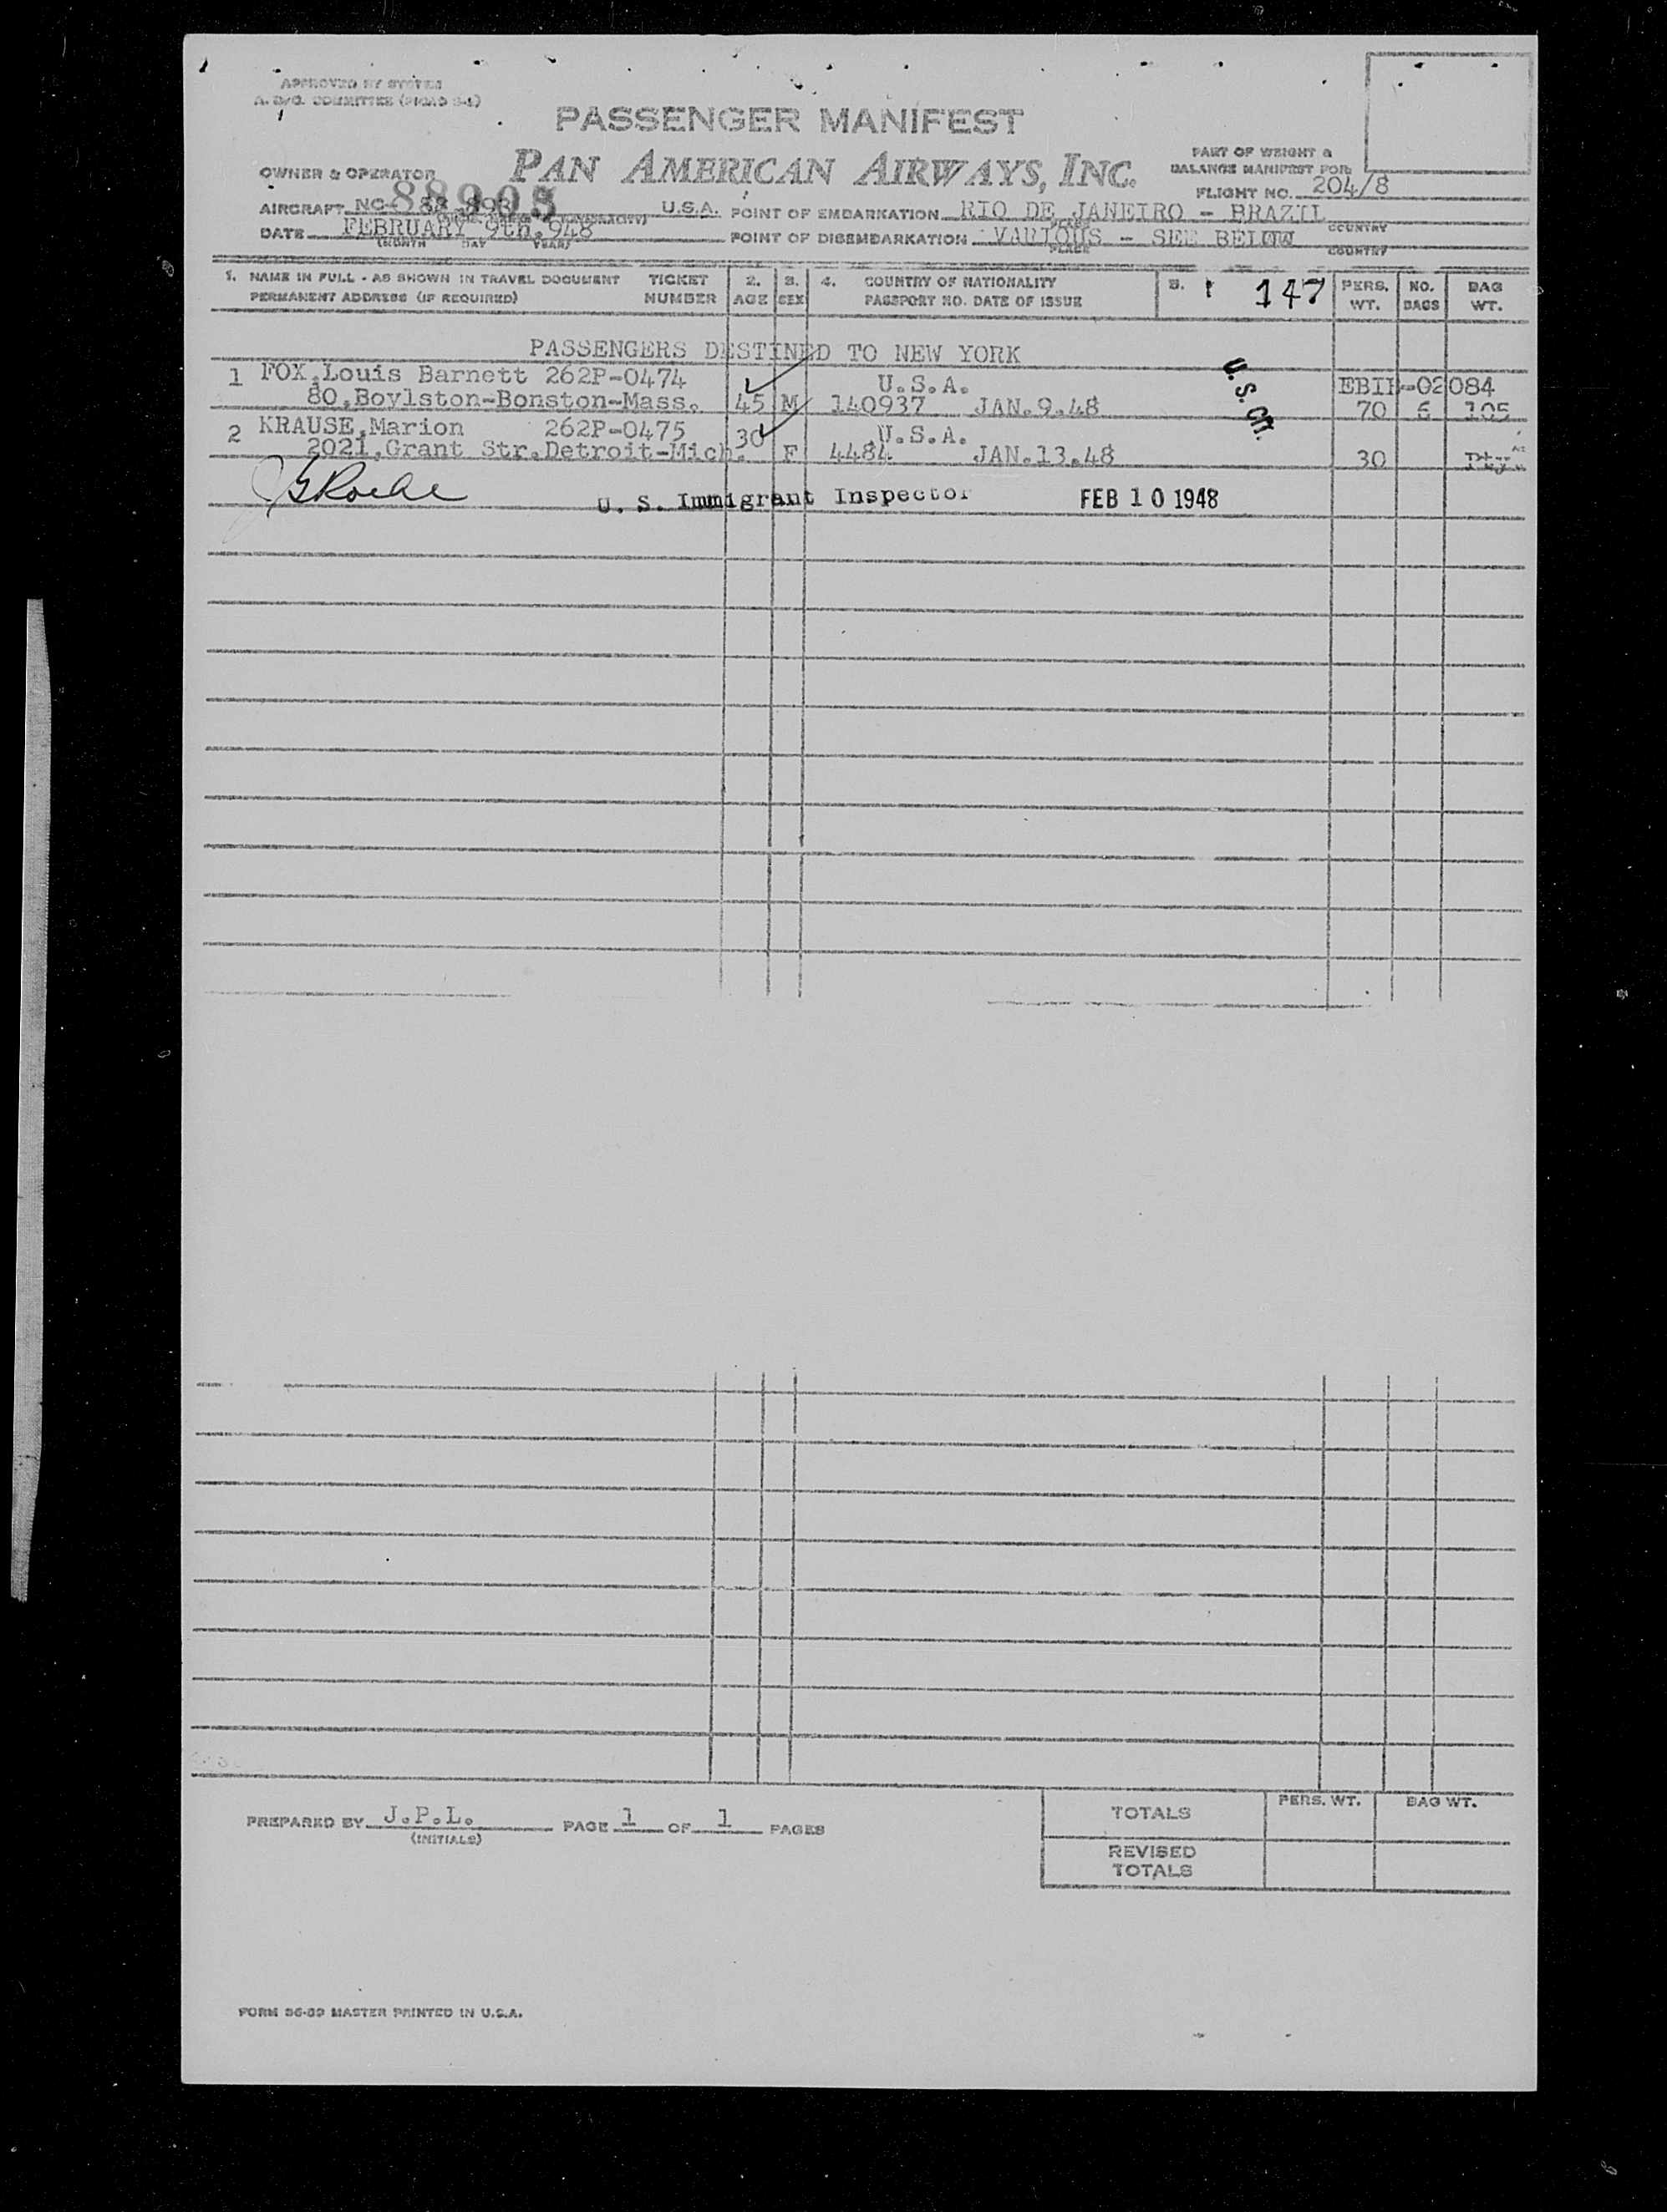 APPROVED BY SYSTEM
PASSENGER MANIFEST
PAN AMERICAN AIRWAYS, INC.
PART OF WEIGHT &
BALANCE MANIFEST FOR:
FLIGHT NO. 204/8
OWNER & OPERATOR
AIRCRAFT NC- 88905 U.S.A. POINT OF EMBARKATION RIO DE JANEIRO - BRAZIL
PLACE COUNTRY
DATE FEBRUARY 9th.948 POINT OF DISEMBARKATION VARIOUS - SEE BELOW
(MONTH DAY YEAR) PLACE COUNTRY
1. NAME IN FULL - AS SHOWN IN TRAVEL DOCUMENT TICKET 2. 3. 4. COUNTRY OF NATIONALITY 5. 147 PERS. NO. BAG
PERMANENT ADDRESS (IF REQUIRED) NUMBER AGE SEX PASSPORT NO. DATE OF ISSUE WT. BAGS WT.
PASSENGERS DESTINED TO NEW YORK
1 FOX,Louis Barnett 262P-0474 U.S.A. U.S. CIT. -02084
80,Boylston-Bonston-Mass. 45 M 140937 JAN.9.48 70 6 105
2 KRAUSE,Marion 262P-0475 30 U.S.A.
2021,Grant Str.Detroit-Mich. F 4484 JAN.13.48 30
U. S. Immigrant Inspector FEB 10 1948
PREPARED BY J.P.L. PAGE 1 OF 1 PAGES
(INITIALS)
TOTALS PERS. WT. BAG WT.
REVISED
TOTALS
FORM MASTER PRINTED IN U.S.A.